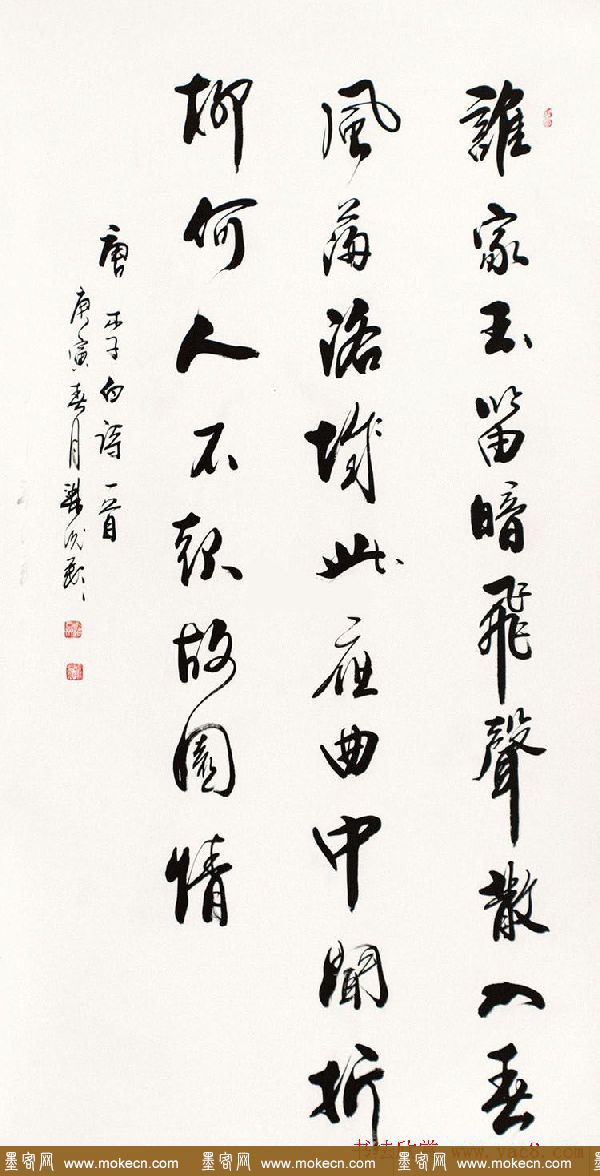 誰家玉笛暗飛聲散入春
風滿洛城此夜曲中聞折
柳何人不起故園情
唐李白詩一首
庚寅春月
书法欣赏 www.yac8.com
墨客网 www.mokecn.com 墨客网 www.mokecn.com 墨客网 www.mokecn.com